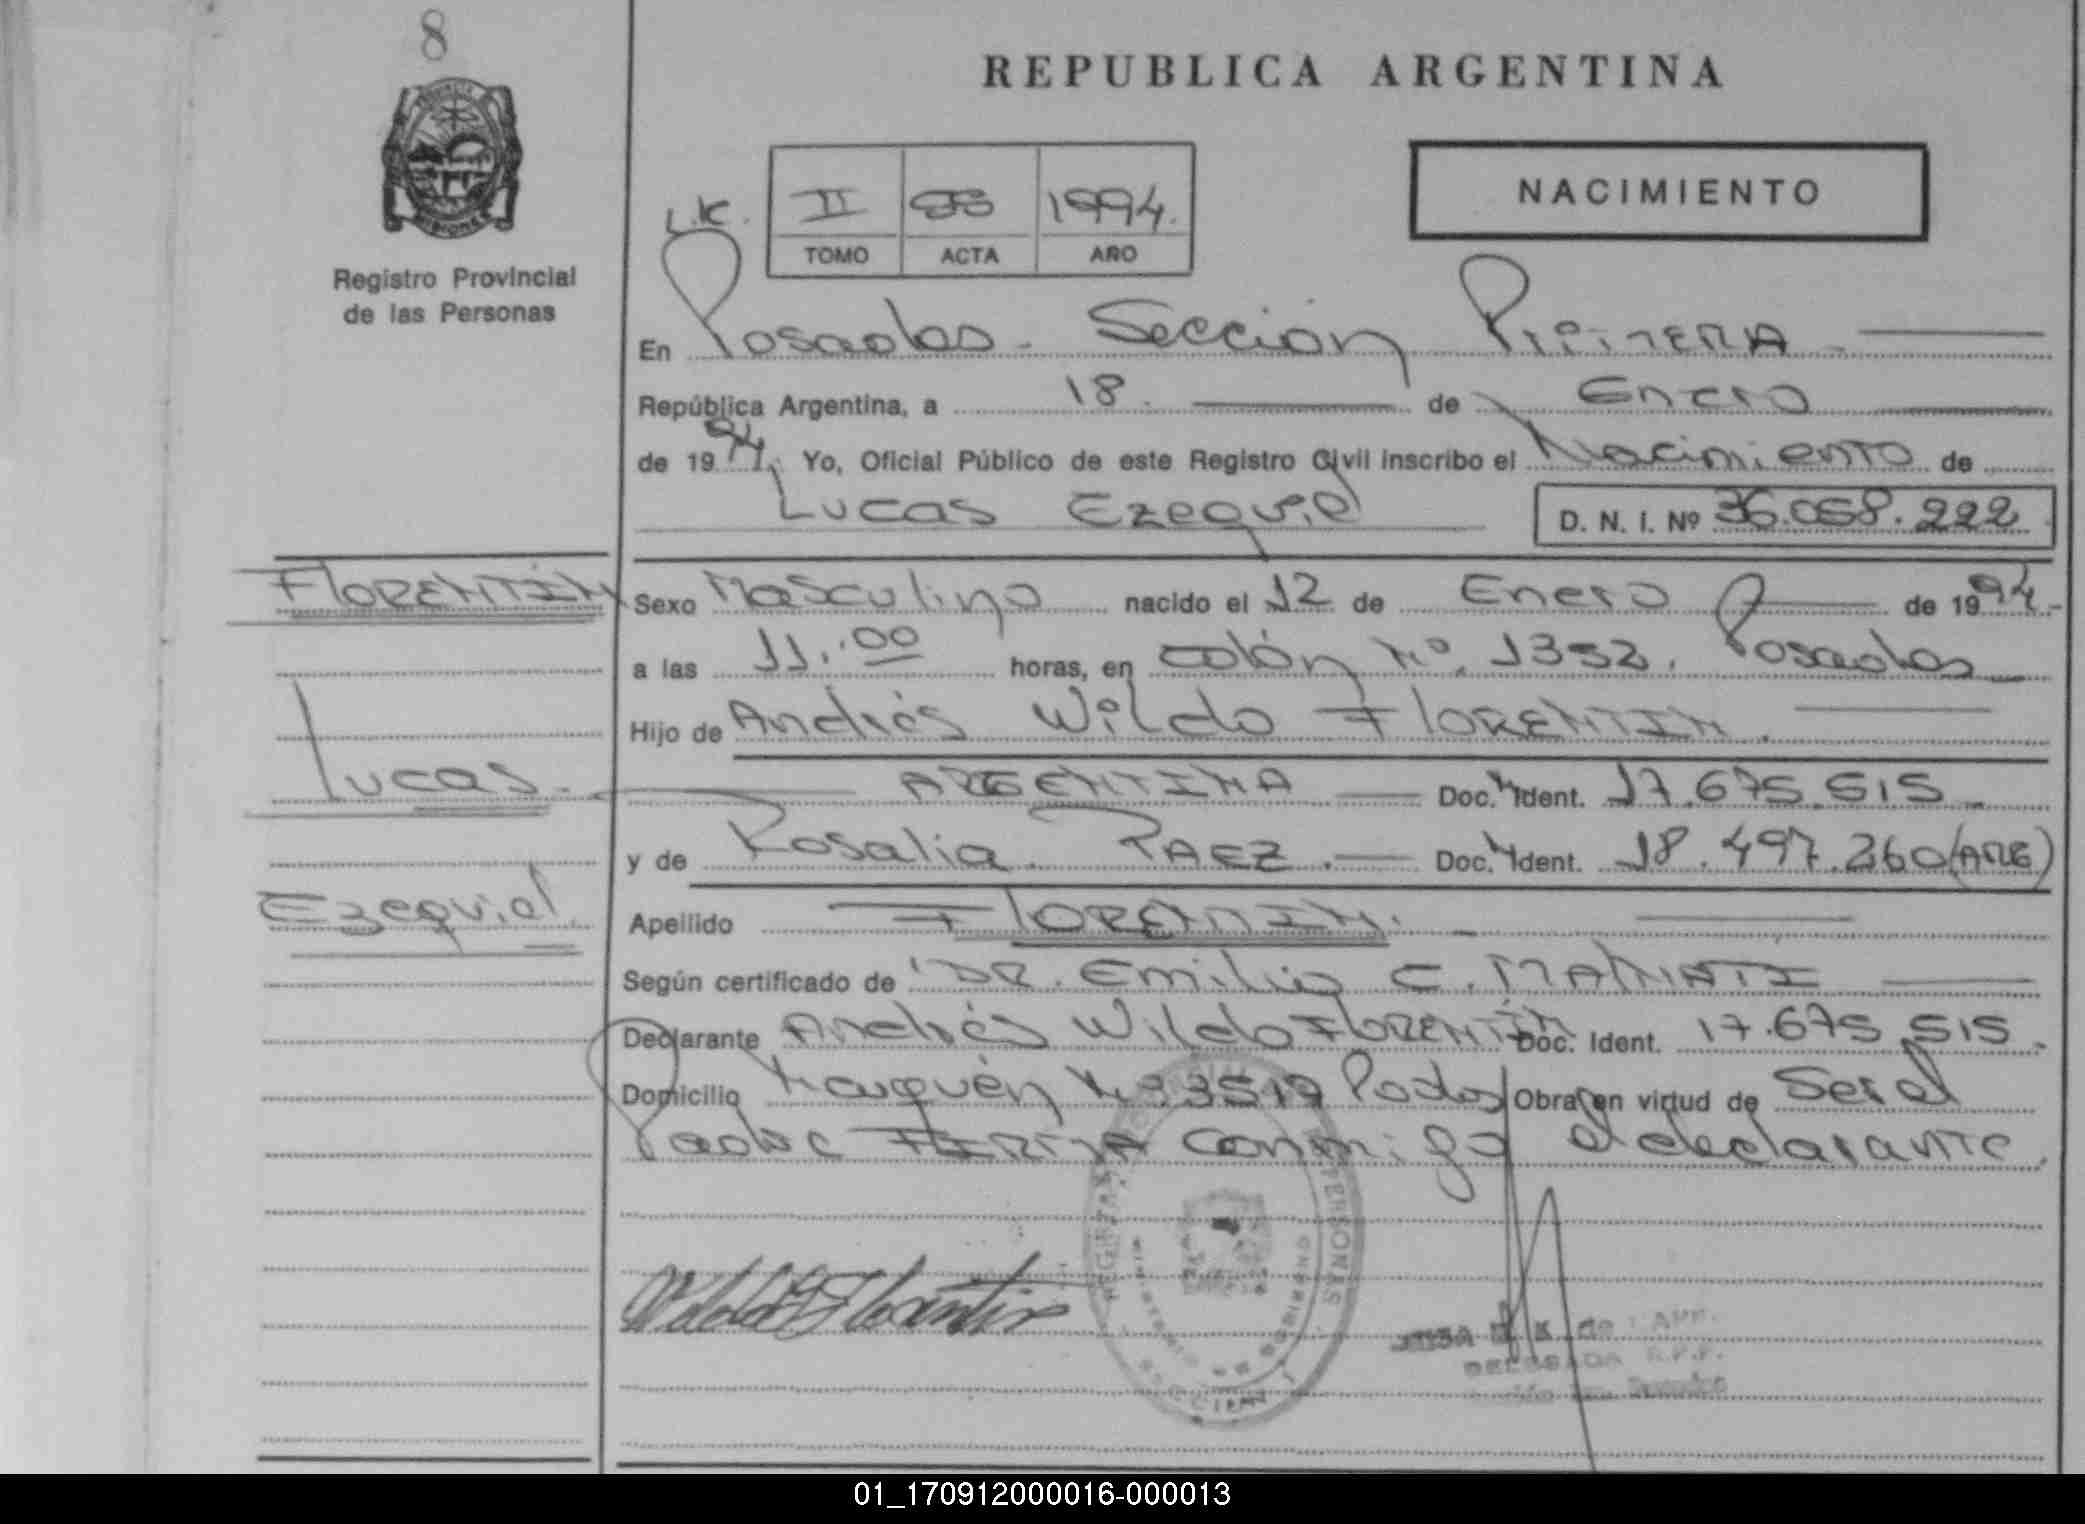 8
REPUBLICA ARGENTINA
NACIMIENTO
L.K. II 1994.
TOMO ACTA AÑO
Registro Provincial
de las Personas
En Posadas. Sección
República Argentina, a 18. de Enero
de 1994. Yo, Oficial Público de este Registro Civil inscribo el Nacimiento de
Lucas Ezequiel D. N. I. Nº 36.058.222
FLORENTÍN Sexo Masculino nacido el 12 de Enero de 1994.-
a las 11.00 horas, en Colón Nº. 1352. Posadas
Hijo de Andrés Wildo FLORENTIN.
Lucas. ARGENTINA Doc. Ident. 17.675.515
y de Rosalia PAEZ. Doc. Ident. 18.497.260 (ARG)
Ezequiel Apellido FLORENTIN.
Según certificado de DR. Emilio C.
Declarante Andrés Wildo FLORENTÍN Doc. Ident. 17.675.515.
Domicilio Nº 3519 Pdas Obra en virtud de Ser el
Padre FIRMA Conmigo el declarante.
REGISTRO PERSONAS
DELEGADA R.P.P.
01_170912000016-000013